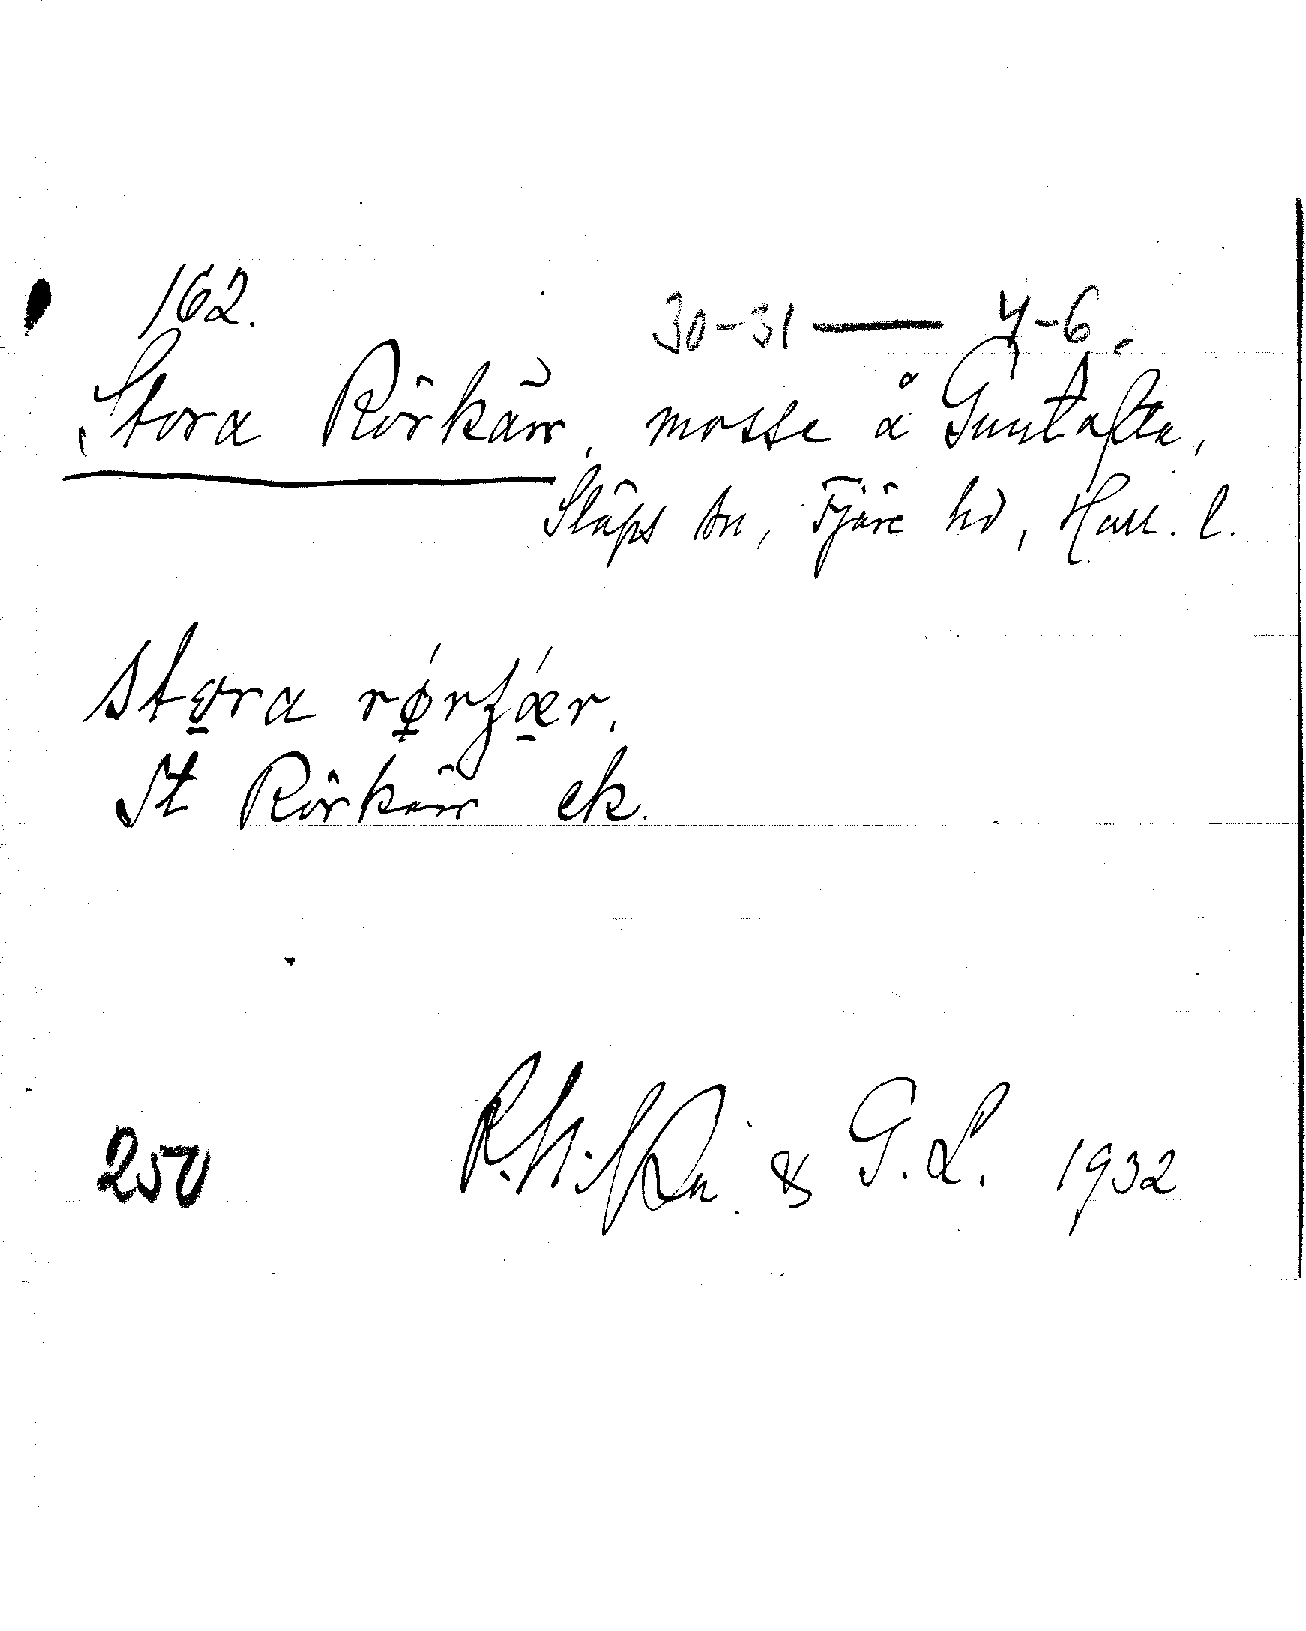 162.
30-31 — 4-6.
Stora Rörkärr, mosse å Guntofta,
Släps sn, Fjäre hd, Hall. l.
stora rørʒær.
St Rörkärr ek.
250 & G. L. 1932